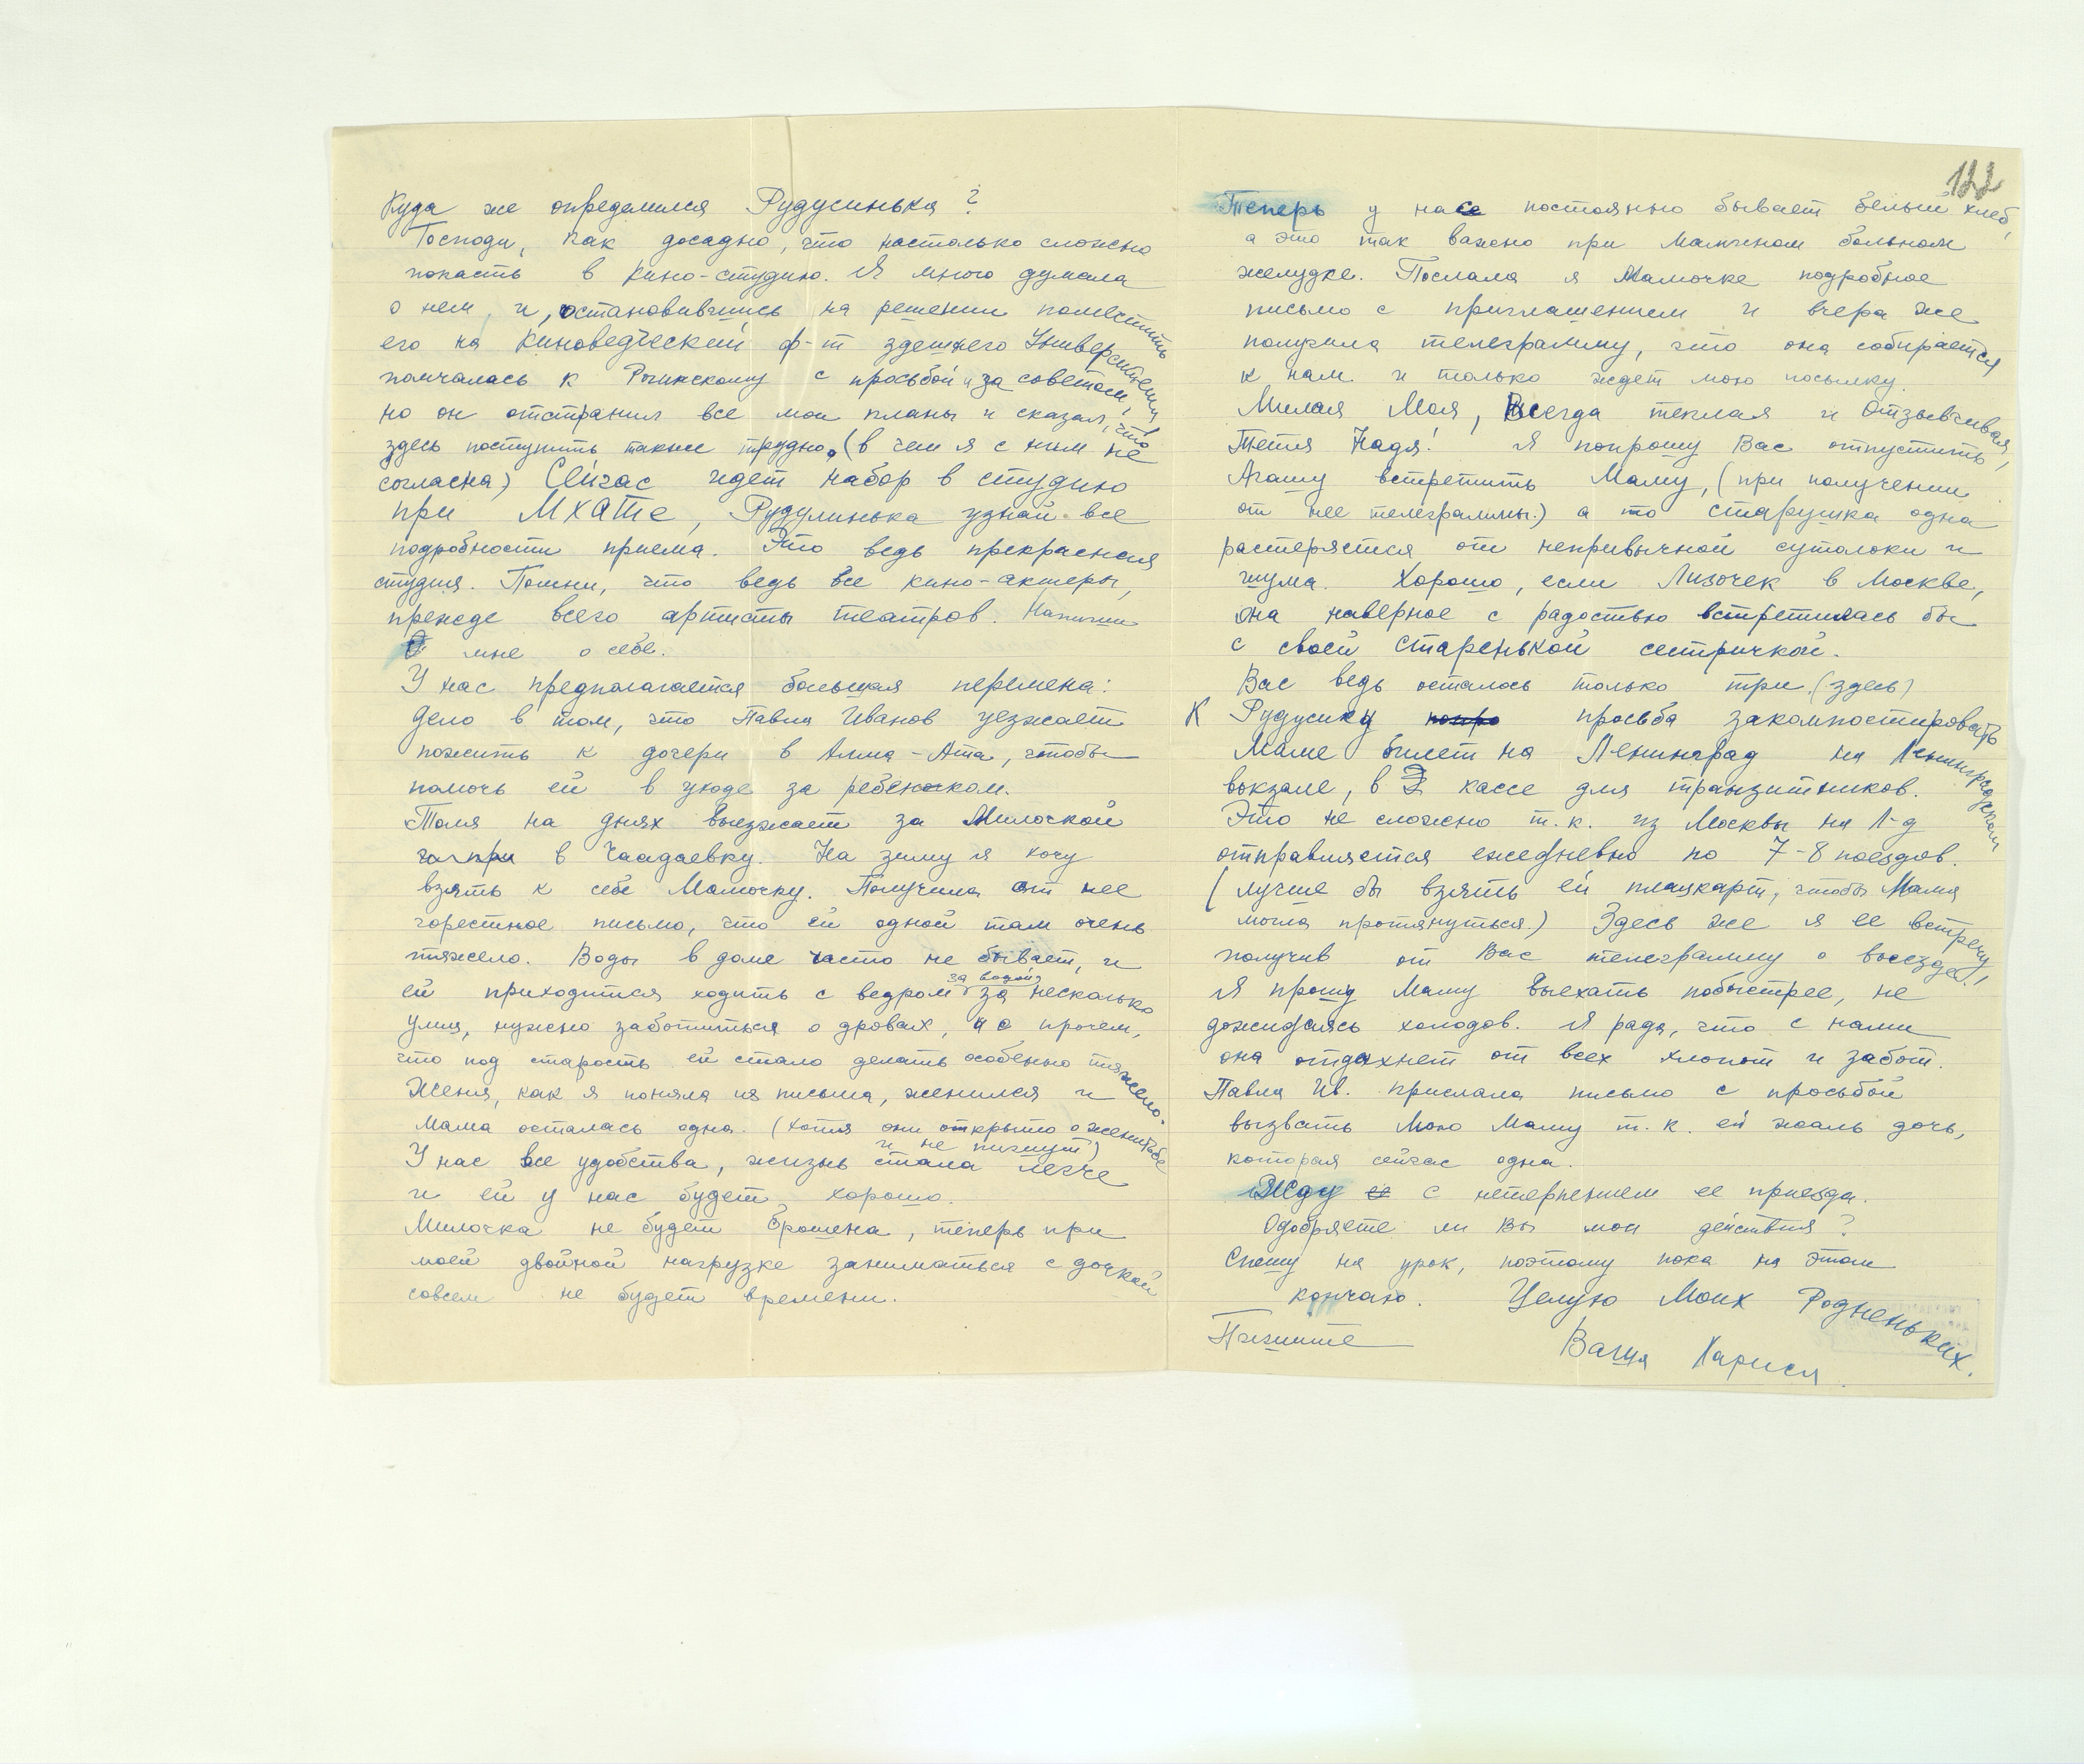 Куда же определился Рудусинька?
Господи, как досадно, что настолько сложно
попасть в кино-студию. Я много думала
о нем, и, остановившись на решении поместить
его на Киноведческий ф-т здешнего Университета,
помчалась к с просьбой и за советом,
но он отстранил все мои планы и сказал, что
здесь поступить также трудно. (в чем я с ним не
согласна) Сейчас идет набор в студию
при МХАТе, Рудулинька узнай все
подробности приема. Это ведь прекрасная
студия. Помни, что ведь все кино-актеры,
прежде всего артисты театров. Напиши
мне о себе.
У нас предполагается большая перемена:
дело в том, что Павла Иванов уезжает
пожить к дочери в Алма-Ата, чтобы
помочь ей в уходе за ребенком.
Толя на днях выезжает за Милочкой
в Чаадаевку. На зиму я хочу
взять к себе Мамочку. Получила от нее
горестное письмо, что ей одной там очень
тяжело. Воды в доме часто не бывает, и
ей приходится ходить с ведром за водой за несколько
улиц, нужно заботиться о дровах, и о прочем,
что под старость ей стало делать особенно тяжело.
Женя, как я поняла из письма, женился и
Мама осталась одна. (хотя они открыто о женитьбе
и не пишут)
У нас все удобства, жизнь стала легче
и ей у нас будет хорошо.
Милочка не будет брошена, теперь при
моей двойной нагрузке заниматься с дочкой
совсем не будет времени.
122
Теперь у нас постоянно бывает белый хлеб,
а это так важно при Мамином больном
желудке. Послала я Мамочке подробное
письмо с приглашением и вчера же
получила телеграмму, что она собирается
к нам и только ждет мою посылку.
Милая Моя, Всегда теплая и Отзывчивая,
Тетя Надя! Я попрошу Вас отпустить
Агашу встретить Маму, (при получении
от нее телеграммы.) а то старушка одна
растеряется от непривычной сутолоки и
шума. Хорошо, если Лизочек в Москве,
она наверное с радостью встретилась бы
с своей Старенькой сестричкой.
Вас ведь осталось только три (здесь)
К Рудусику попро просьба закомпостировать
Маме билет на Ленинград на Ленинградском
вокзале, в кассе для транзитников.
Это не сложно т.к. из Москвы на Л-д
отправляется ежедневно по 7-8 поездов.
(лучше бы взять ей плацкарт, чтобы Мама
могла протянуться.) Здесь же я ее встречу,
получив от Вас телеграмму о выезде!
Я прошу Маму выехать побыстрее, не
дожидаясь холодов. Я рада, что с нами
она отдахнет от всех хлопот и забот.
Павла Ив. прислала письмо с просьбой
вызвать Мою Маму т.к. ей жаль дочь,
которая сейчас одна.
Жду ее с нетерпением ее приезда.
Одобряете ли Вы мои действия?
Спешу на урок, поэтому пока на этом
кончаю. Целую Моих Родненьких.
Пишите Ваша Лариса.